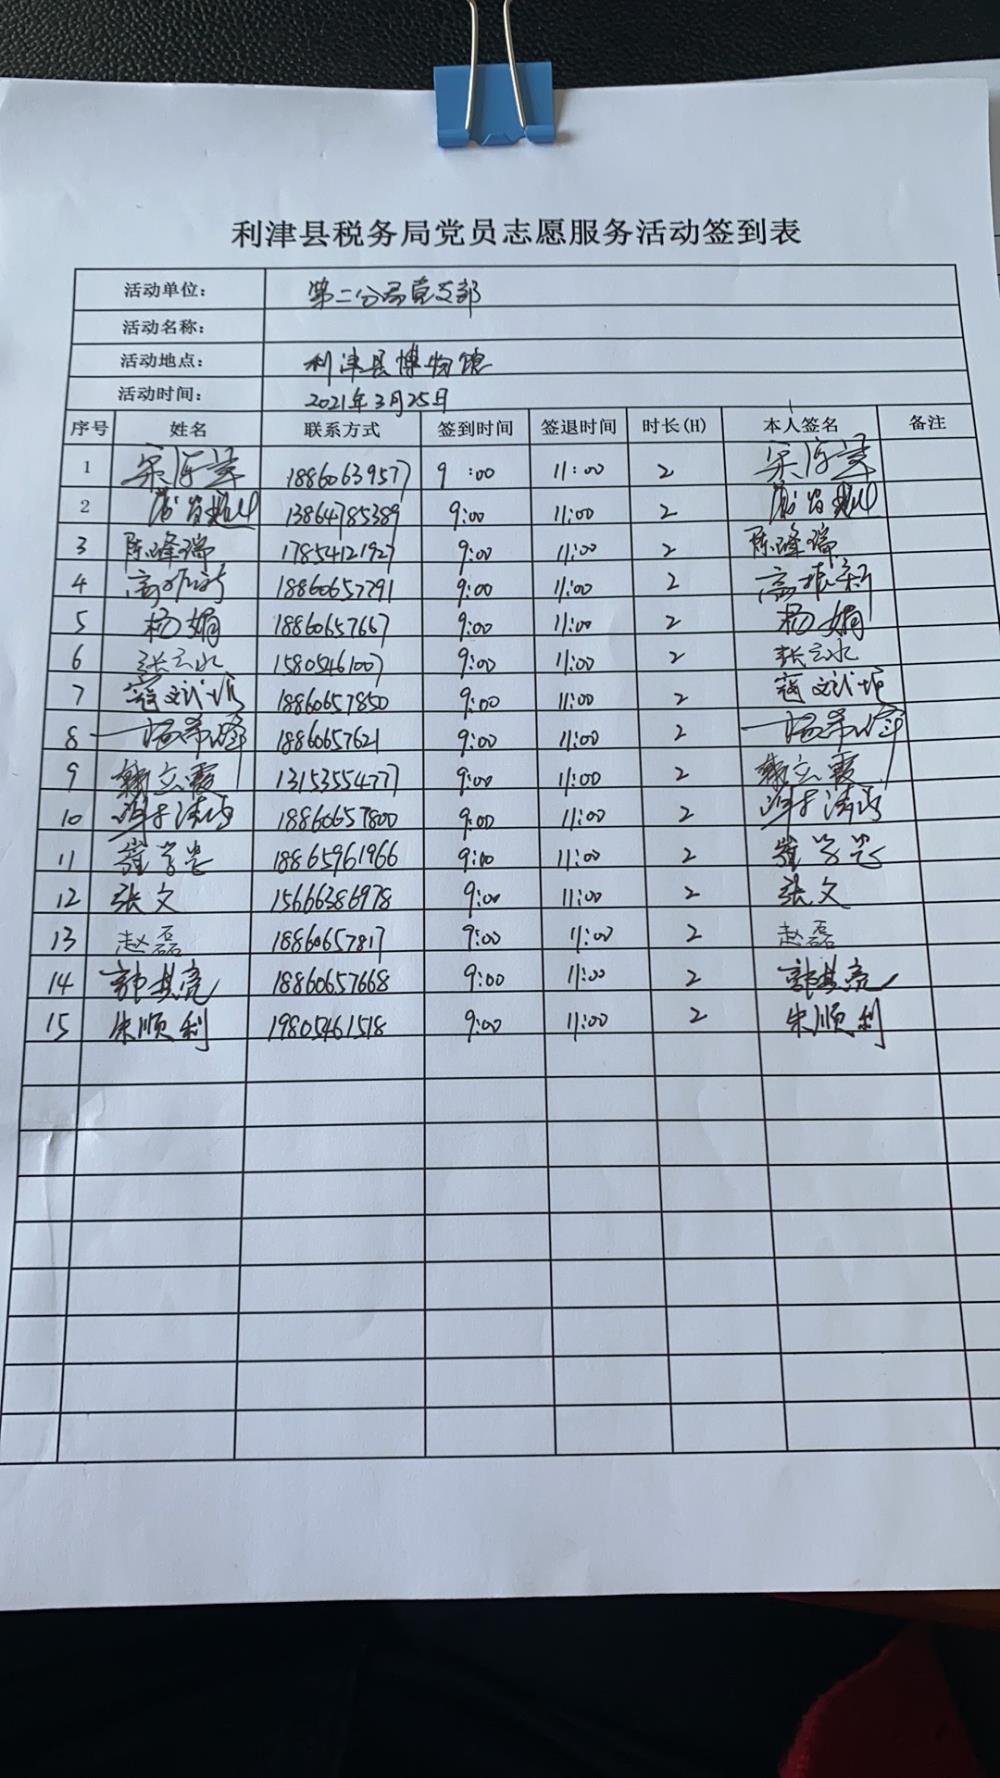 利津县税务局党员志愿服务活动签到表
活动单位： 第二分局党支部
活动名称：
活动地点： 利津县博物馆
活动时间： 2021年3月25日
序号 姓名 联系方式 签到时间 签退时间 时长(H) 本人签名 备注
1 18860639577 9:00 11:00 2
2 13864785389 9:00 11:00 2
3 陈峰瑞 17854121927 9:00 11:00 2 陈峰瑞
4 18860657791 9:00 11:00 2
5 杨娟 18860657667 9:00 11:00 2 杨娟
6 张云水 15805461007 9:00 11:00 2 张云水
7 寇文 18860657850 9:00 11:00 2 寇文
8 18860657621 9:00 11:00 2
9 韩立霞 13153554777 9:00 11:00 2 韩立霞
10 18860657800 9:00 11:00 2
11 崔 18865961966 9:00 11:00 2 崔
12 张文 15666386978 9:00 11:00 2 张文
13 赵磊 18860657817 9:00 11:00 2 赵磊
14 郭其亮 18860657668 9:00 11:00 2 郭其亮
15 朱顺利 19805461518 9:00 11:00 2 朱顺利